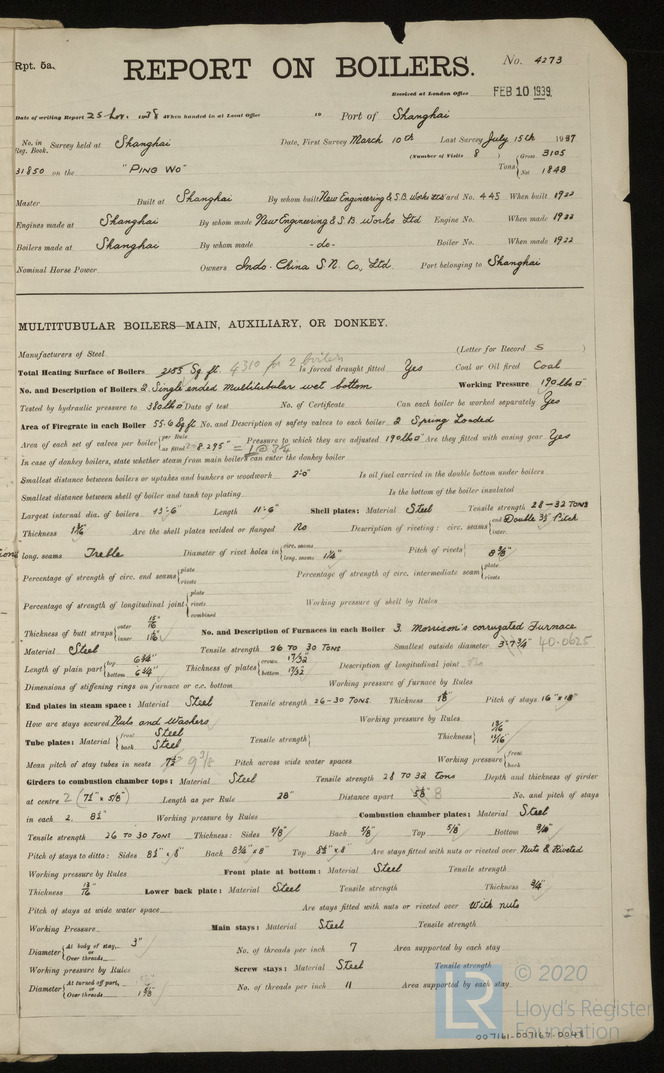 Rpt. 5a.
REPORT ON BOILERS.
No. 4273
Received at London Office FEB 10 1939
Date of writing Report 25 Nov. 1938 When handed in at Local Office 19 Port of Shanghai
No. in Reg. Book. Survey held at Shanghai Date, First Survey March 10th Last Survey July 15th 1937
(Number of Visits 8 )
31850 on the "PING WO" Tons { Gross 3105 Net 1848
Master Built at Shanghai By whom built New Engineering & S.B. Works Ltd Yard No. 445 When built 1922
Engines made at Shanghai By whom made New Engineering & S.B. Works Ltd Engine No. When made 1922
Boilers made at Shanghai By whom made -do- Boiler No. When made 1922
Nominal Horse Power Owners Indo-China S.N. Co., Ltd. Port belonging to Shanghai
MULTITUBULAR BOILERS—MAIN, AUXILIARY, OR DONKEY.
Manufacturers of Steel (Letter for Record S )
Total Heating Surface of Boilers 2155 Sq. ft. 4310 for 2 boilers Is forced draught fitted Yes Coal or Oil fired Coal
No. and Description of Boilers 2 Single ended Multitubular wet bottom Working Pressure 190 lbs □"
Tested by hydraulic pressure to 380 lbs □" Date of test No. of Certificate Can each boiler be worked separately Yes
Area of Firegrate in each Boiler 55.6 Sq ft No. and Description of safety valves to each boiler 2 Spring Loaded
Area of each set of valves per boiler { per Rule as fitted 8.295" = Pressure to which they are adjusted 190 lbs □" Are they fitted with easing gear Yes
In case of donkey boilers, state whether steam from main boilers can enter the donkey boiler
Smallest distance between boilers or uptakes and bunkers or woodwork 2'-0" Is oil fuel carried in the double bottom under boilers
Smallest distance between shell of boiler and tank top plating Is the bottom of the boiler insulated
Largest internal dia. of boilers 13'-6" Length 11'-6" Shell plates: Material Steel Tensile strength 28-32 TONS
Thickness Are the shell plates welded or flanged No Description of riveting: circ. seams { end Double 3½ Pitch inter.
long. seams Treble Diameter of rivet holes in { circ. seams long. seams 1¼" Pitch of rivets { 8⅜"
Percentage of strength of circ. end seams { plate rivets Percentage of strength of circ. intermediate seam { plate rivets
Percentage of strength of longitudinal joint { plate rivets combined Working pressure of shell by Rules
Thickness of butt straps { outer 15/16 inner No. and Description of Furnaces in each Boiler 3. Morrison's corrugated Furnace
Material Steel Tensile strength 26 TO 30 TONS Smallest outside diameter 3'-7¾" 40.0625
Length of plain part { top 6¾" bottom 6¾" Thickness of plates { crown 17/32" bottom 17/32" Description of longitudinal joint
Dimensions of stiffening rings on furnace or c.c. bottom Working pressure of furnace by Rules
End plates in steam space: Material Steel Tensile strength 26-30 TONS Thickness Pitch of stays 16" x 18"
How are stays secured Nuts and Washers Working pressure by Rules
Tube plates: Material { front Steel back Steel Tensile strength { Thickness { 13/16" 11/16"
Mean pitch of stay tubes in nests 9⅜ Pitch across wide water spaces Working pressure { front back
Girders to combustion chamber tops: Material Steel Tensile strength 28 TO 32 Tons Depth and thickness of girder
at centre 2 (7½" x 5/8") Length as per Rule 28" Distance apart 8 No. and pitch of stays
in each 2. 8½" Working pressure by Rules Combustion chamber plates: Material Steel
Tensile strength 26 TO 30 TONS Thickness: Sides 5/8" Back 5/8" Top 5/8" Bottom
Pitch of stays to ditto: Sides 8½" x 8" Back 8¾" x 8" Top 8½" x 8" Are stays fitted with nuts or riveted over Nuts & Riveted
Working pressure by Rules Front plate at bottom: Material Steel Tensile strength
Thickness 13/16" Lower back plate: Material Steel Tensile strength Thickness ¾"
Pitch of stays at wide water space Are stays fitted with nuts or riveted over With nuts
Working Pressure Main stays: Material Steel Tensile strength
Diameter { At body of stay, or Over threads 3" No. of threads per inch 7 Area supported by each stay
Working pressure by Rules Screw stays: Material Steel Tensile strength
Diameter { At turned off part, or Over threads 1⅝" No. of threads per inch 11 Area supported by each stay
LR © 2020 Lloyd's Register Foundation
007161-007167-0048